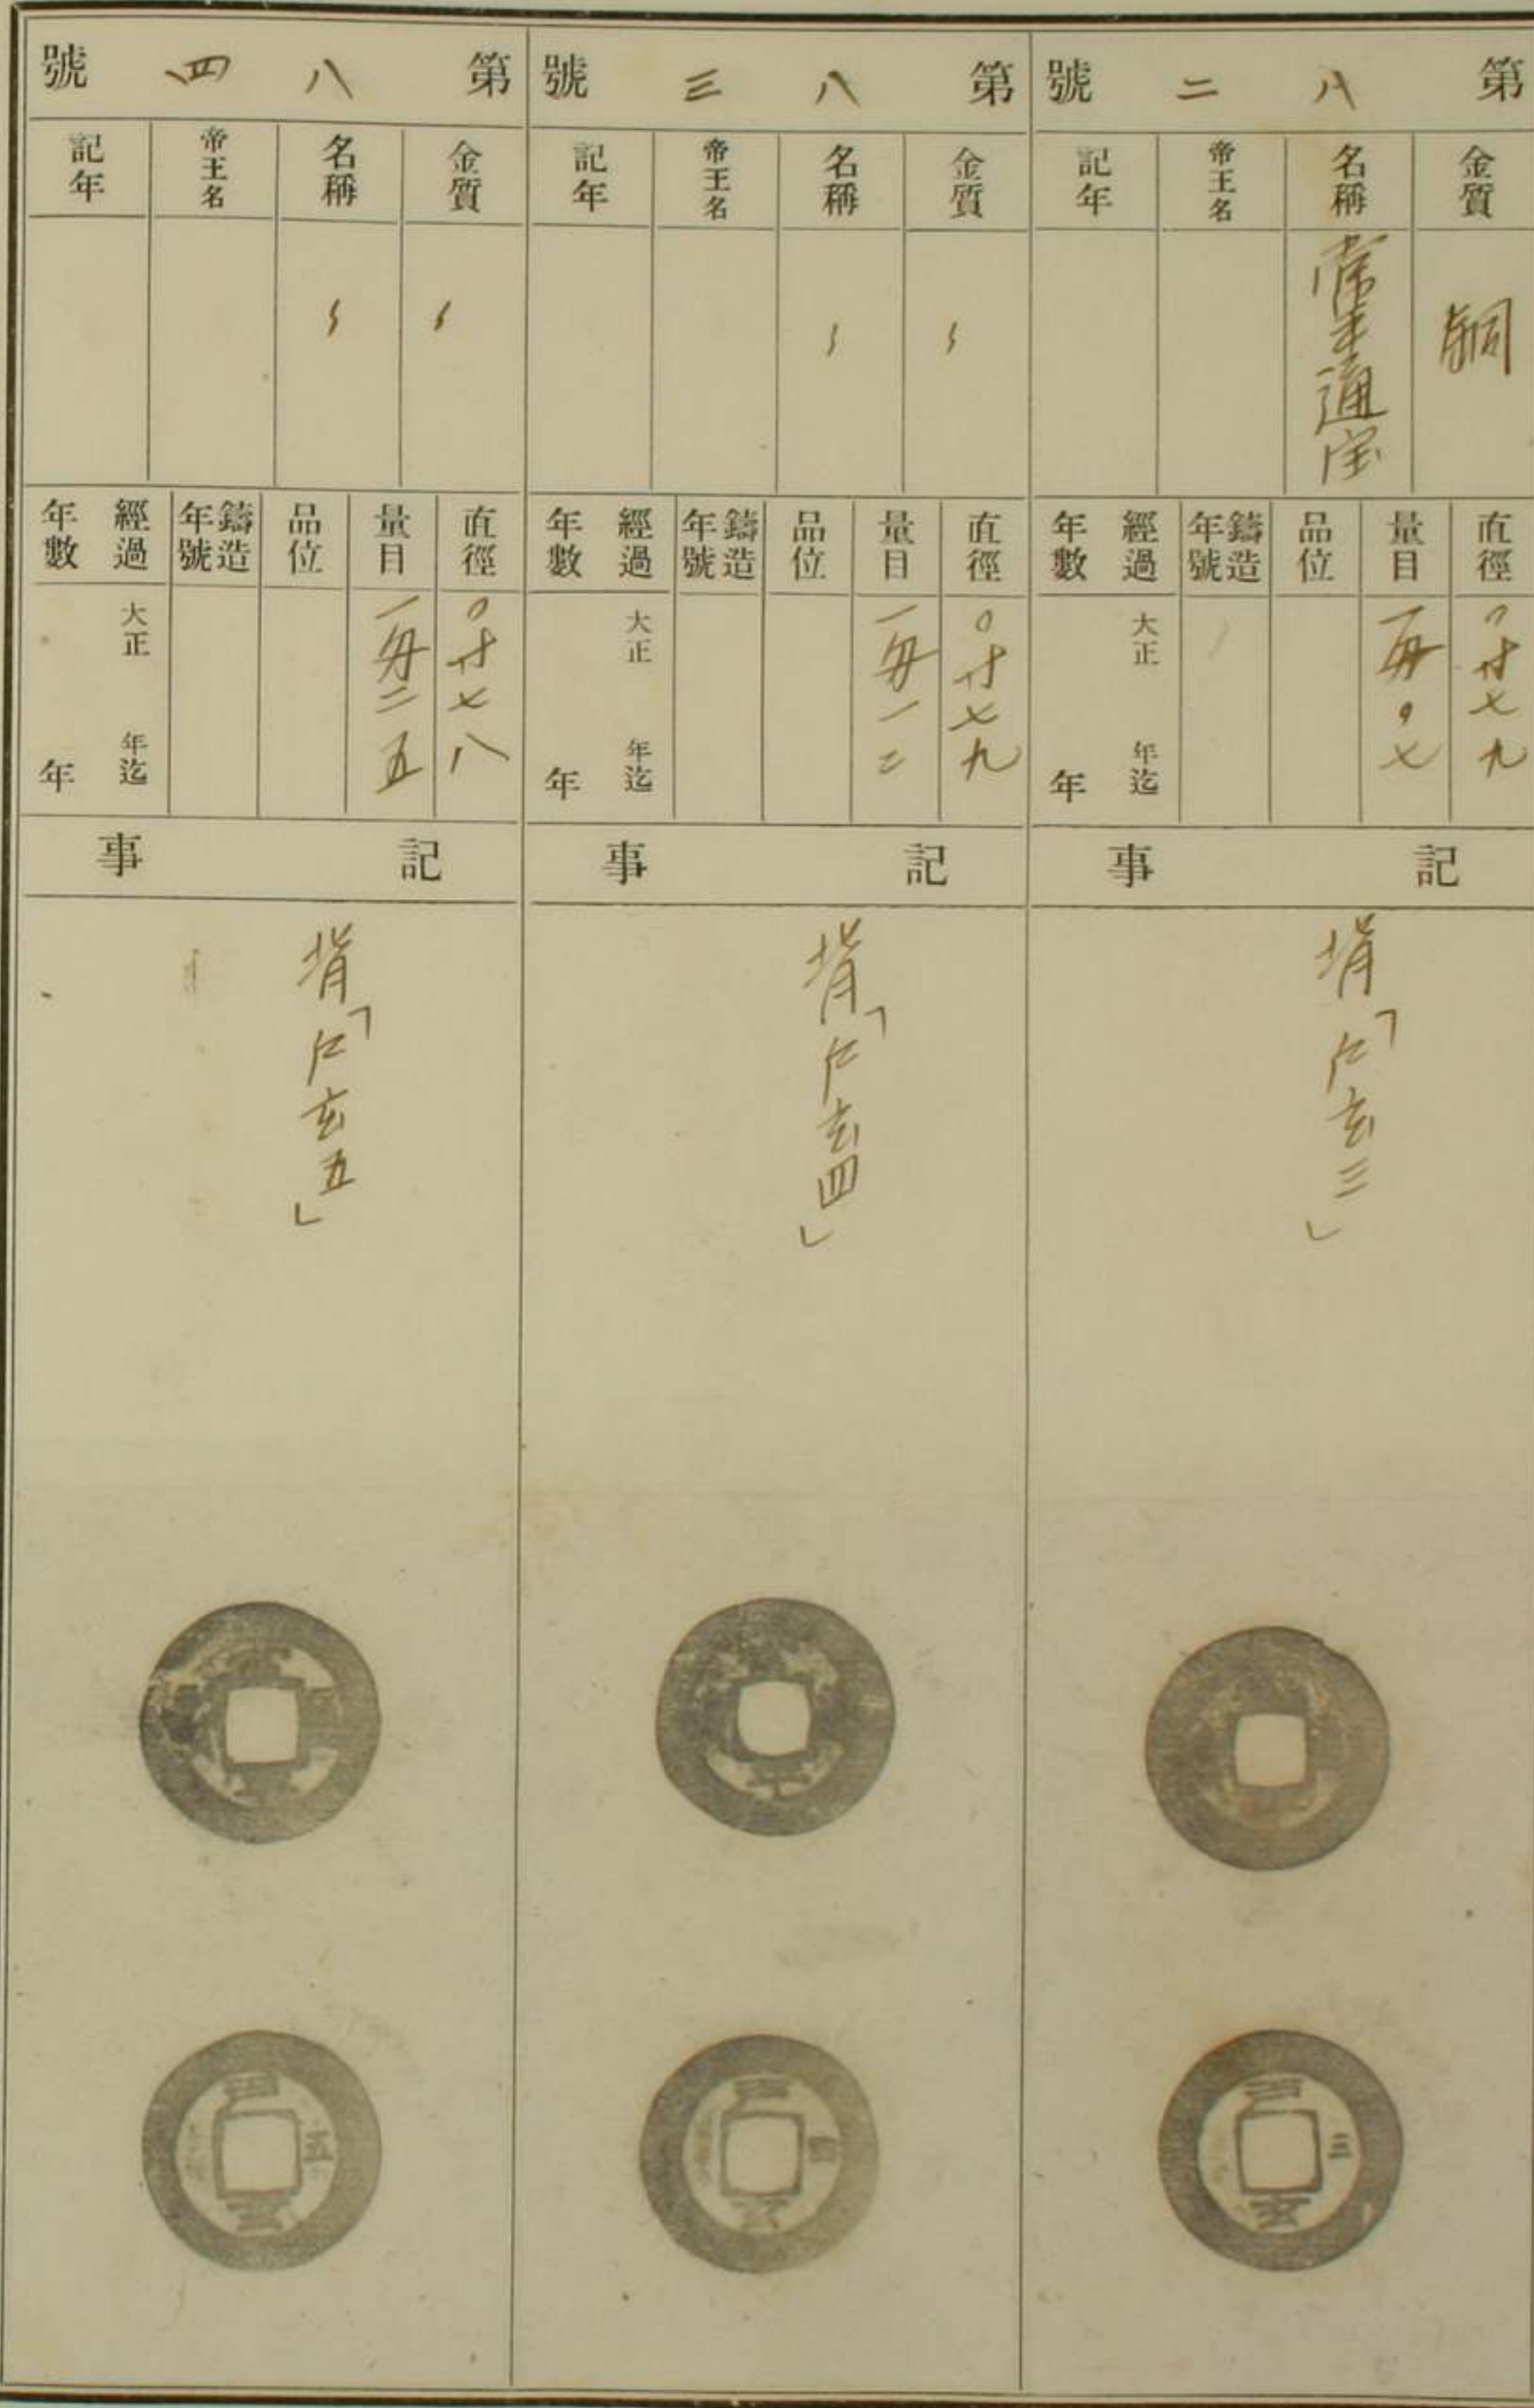 第八二號
金質
銅
名稱
常平通宝
帝王名
記年
直徑
〇寸七九
量目
一匁〇七
品位
鑄造年號
經過年數
大正 年迄
年
記事
背「仁玄三」
三
玄
第八三號
金質
〻
名稱
〻
帝王名
記年
直徑
〇寸七九
量目
一匁一二
品位
鑄造年號
經過年數
大正 年迄
年
記事
背「仁玄四」
四
玄
第八四號
金質
〻
名稱
〻
帝王名
記年
直徑
〇寸七八
量目
一匁二五
品位
鑄造年號
經過年數
大正 年迄
年
記事
背「仁玄五」
五
玄